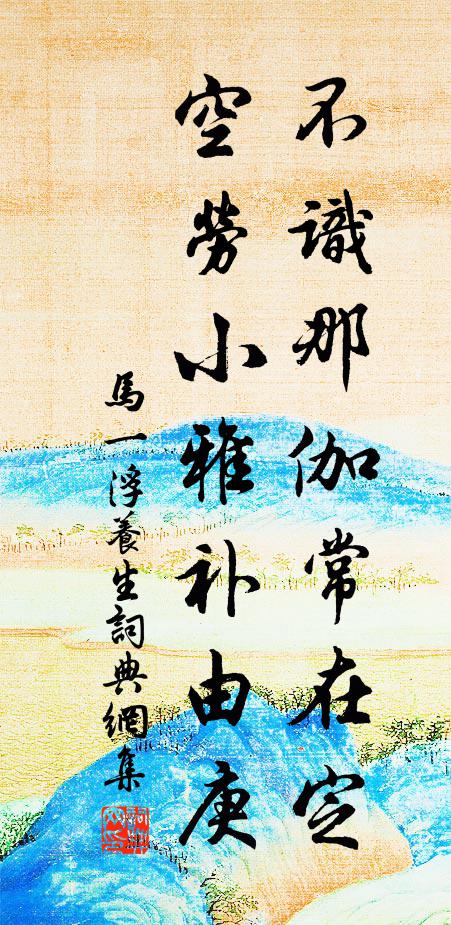 不識那伽常在定
空勞小雅补由庚
馬一浮養生詞典網集